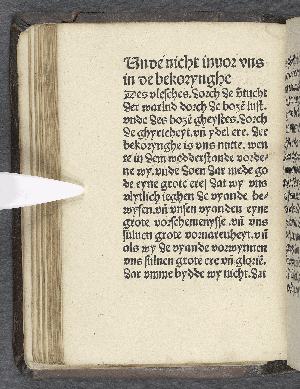 Unde nicht invor vns
in de bekorynghe
Des vlesches. dorch de
der werlnd dorch de boze lust.
vnde des boze gheystes. dorch
de ghyricheyt. vn̄ ydel ere. der
bekorynghe is vns nutte. wen
te in dem wedderstande vorde-
ne wy. vnde doen dar mede go
de eyne grote ere dat wy vns
vlytlich ieghen de vyande be-
wysen. vn̄ vnsen vyanden eyne
grote vorschemenysse. vn̄ vns
suluen grote vornarenheyt. vn̄
als wy de vyande vorwynnen
vns suluen grote ere vn̄ glorie.
Dar vmme bydde wy nicht. dat